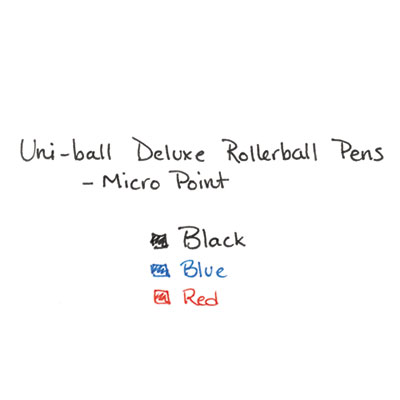 Uni-ball Deluxe Rollerball Pens
- Micro Point
Black
Blue
Red